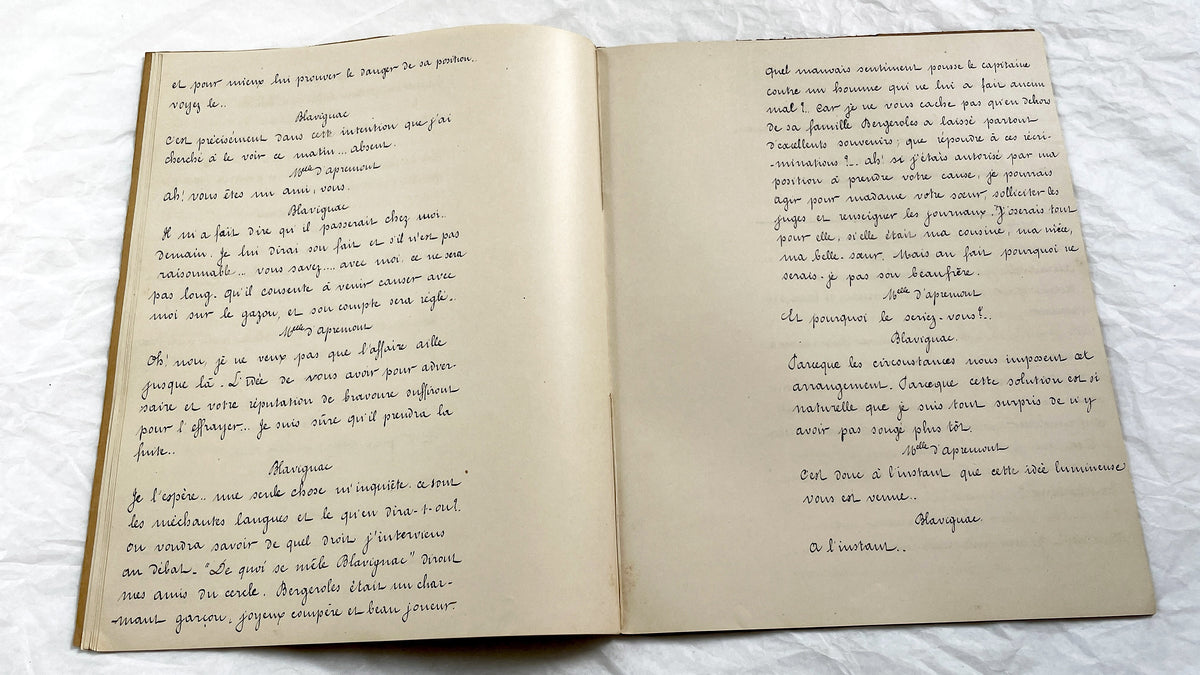 et pour mieux lui prouver le danger de sa position..
voyez le..
Blavignac
C'est précisément dans cette intention que j'ai
cherché à le voir ce matin... absent.
Melle d'apremont
Ah! vous êtes un ami, vous.
Blavignac
Il m'a fait dire qu'il passerait chez moi..
demain. Je lui dirai son fait et s'il n'est pas
raisonnable... vous savez.... avec moi, ce ne sera
pas long. qu'il consente à venir causer avec
moi sur le gazon, et son compte sera réglé..
Melle d'apremont
Oh! non, je ne veux pas que l'affaire aille
jusque là. L'idée de vous avoir pour adver-
saire et votre réputation de bravoure suffiront
pour l'effrayer... Je suis sûre qu'il prendra la
fuite..
Blavignac
Je l'espère.. une seule chose m'inquiète. ce sont
les méchantes langues et le qu'en dira-t-on?.
on voudra savoir de quel droit j'interviens
au débat. "De quoi se mêle Blavignac" diront
mes amis du cercle. Bergeroles était un char-
-mant garçon, joyeux compère et beau joueur.
Quel mauvais sentiment pousse le capitaine
contre un homme qui ne lui a fait aucun
mal?.. Car je ne vous cache pas qu'en dehors
de sa famille Bergeroles a laissé partout
d'excellents souvenirs; que répondre à ces récri-
-minations?.. ah! si j'étais autorisé par ma
position à prendre votre cause, je pourrais
agir pour madame votre sœur, solliciter les
juges et renseigner les journaux. J'oserais tout
pour elle, si elle était ma cousine, ma nièce,
ma belle-sœur. Mais au fait pourquoi ne
serais-je pas son beaufrère.
Melle d'apremont
Et pourquoi le seriez-vous?..
Blavignac.
Parceque les circonstances nous imposent cet
arrangement. Parceque cette solution est si
naturelle que je suis tout surpris de n'y
avoir pas songé plus tôt.
Melle d'apremont
C'est donc à l'instant que cette idée lumineuse
vous est venue..
Blavignac.
A l'instant..